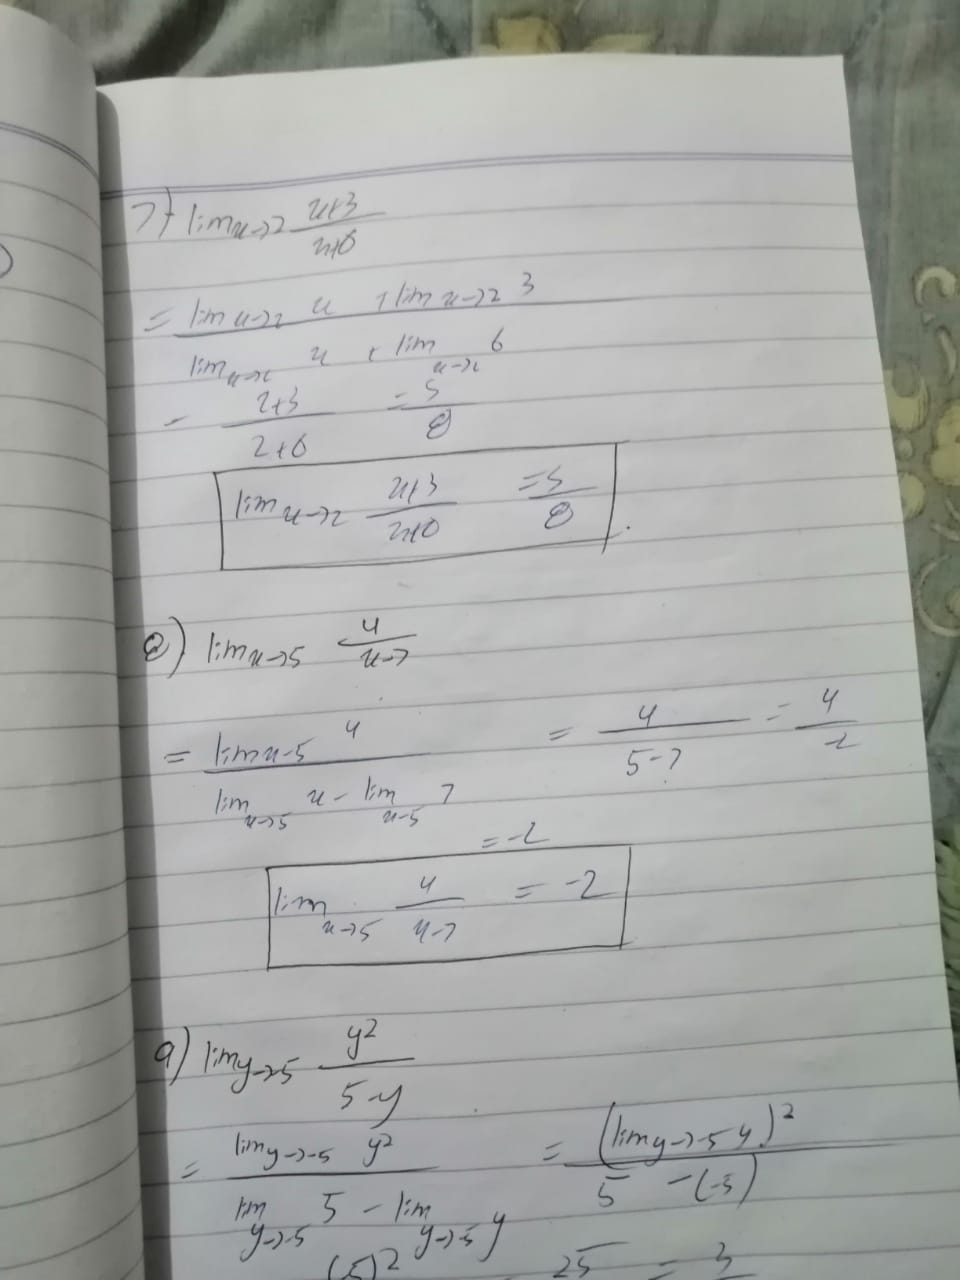 7) lim x→2 x+3 / x+6
= lim x→2 x + lim x→2 3 / lim x→2 x + lim x→2 6
= 2+3 / 2+6 = 5/8
lim x→2 x+3 / x+6 = 5/8.
8) lim x→5 4 / x-7
= lim x-5 4 / lim x→5 x - lim x-5 7 = 4 / 5-7 = 4 / -2
= -2
lim x→5 4 / x-7 = -2
9) lim y→-5 y² / 5-y
= lim y→-5 y² / lim y→-5 5 - lim y→-5 y = (lim y→-5 y)² / 5 -(-5)
25 =